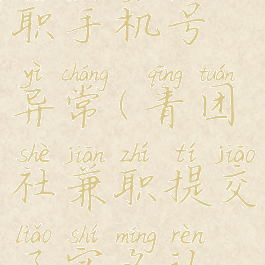 职手机号
yì cháng qīng tuán
异常(青团
shè jiān zhí tí jiāo
社兼职提交
liǎo shí míng rèn
了实名认